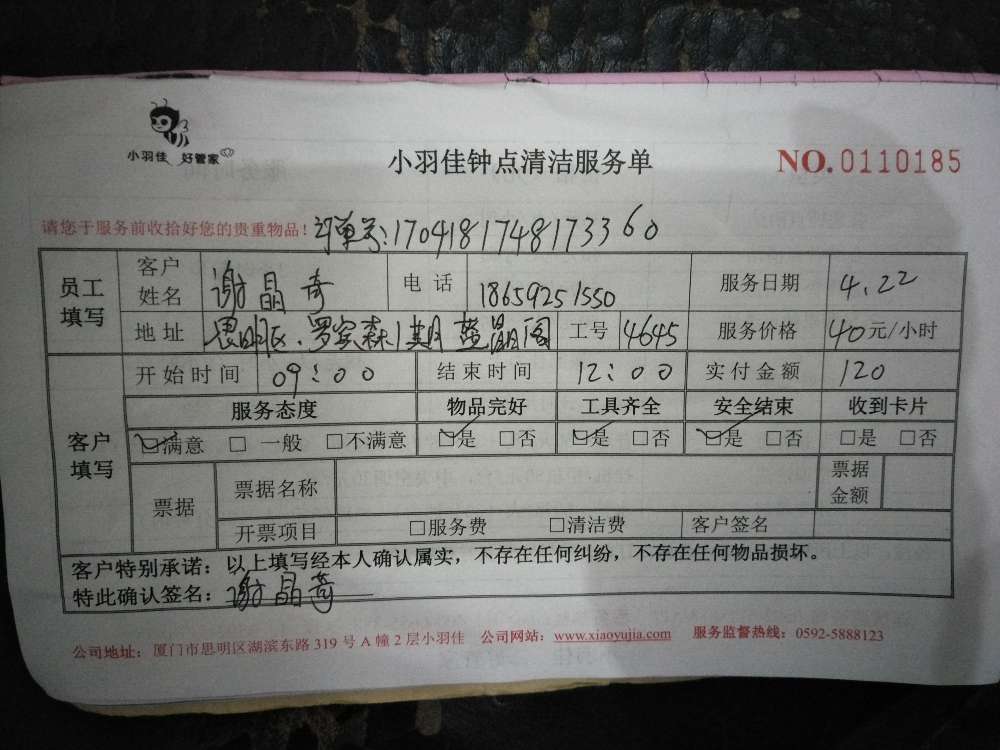 小羽佳 好管家
小羽佳钟点清洁服务单
NO.0110185
请您于服务前收拾好您的贵重物品！订单号:1704181748173360
员工填写 客户姓名 谢晶奇 电话 18659251550 服务日期 4.22
地址 思明区.罗宾森1期 蓝月阁 工号 4645 服务价格 40元/小时
客户填写 开始时间 09:00 结束时间 12:00 实付金额 120
服务态度 物品完好 工具齐全 安全结束 收到卡片
☑满意 □ 一般 □不满意 ☑是 □否 ☑是 □否 ☑是 □否 □是 □否
票据 票据名称 票据金额
开票项目 □服务费 □清洁费 客户签名
客户特别承诺：以上填写经本人确认属实，不存在任何纠纷，不存在任何物品损坏。
特此确认签名：谢晶奇
公司地址：厦门市思明区湖滨东路 319 号 A 幢 2 层小羽佳 公司网站：www.xiaoyujia.com 服务监督热线：0592-5888123